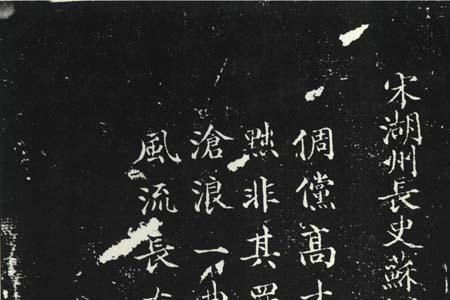 宋湖州長史蘇
倜儻高
黜非其罪
滄浪一曲
風流長